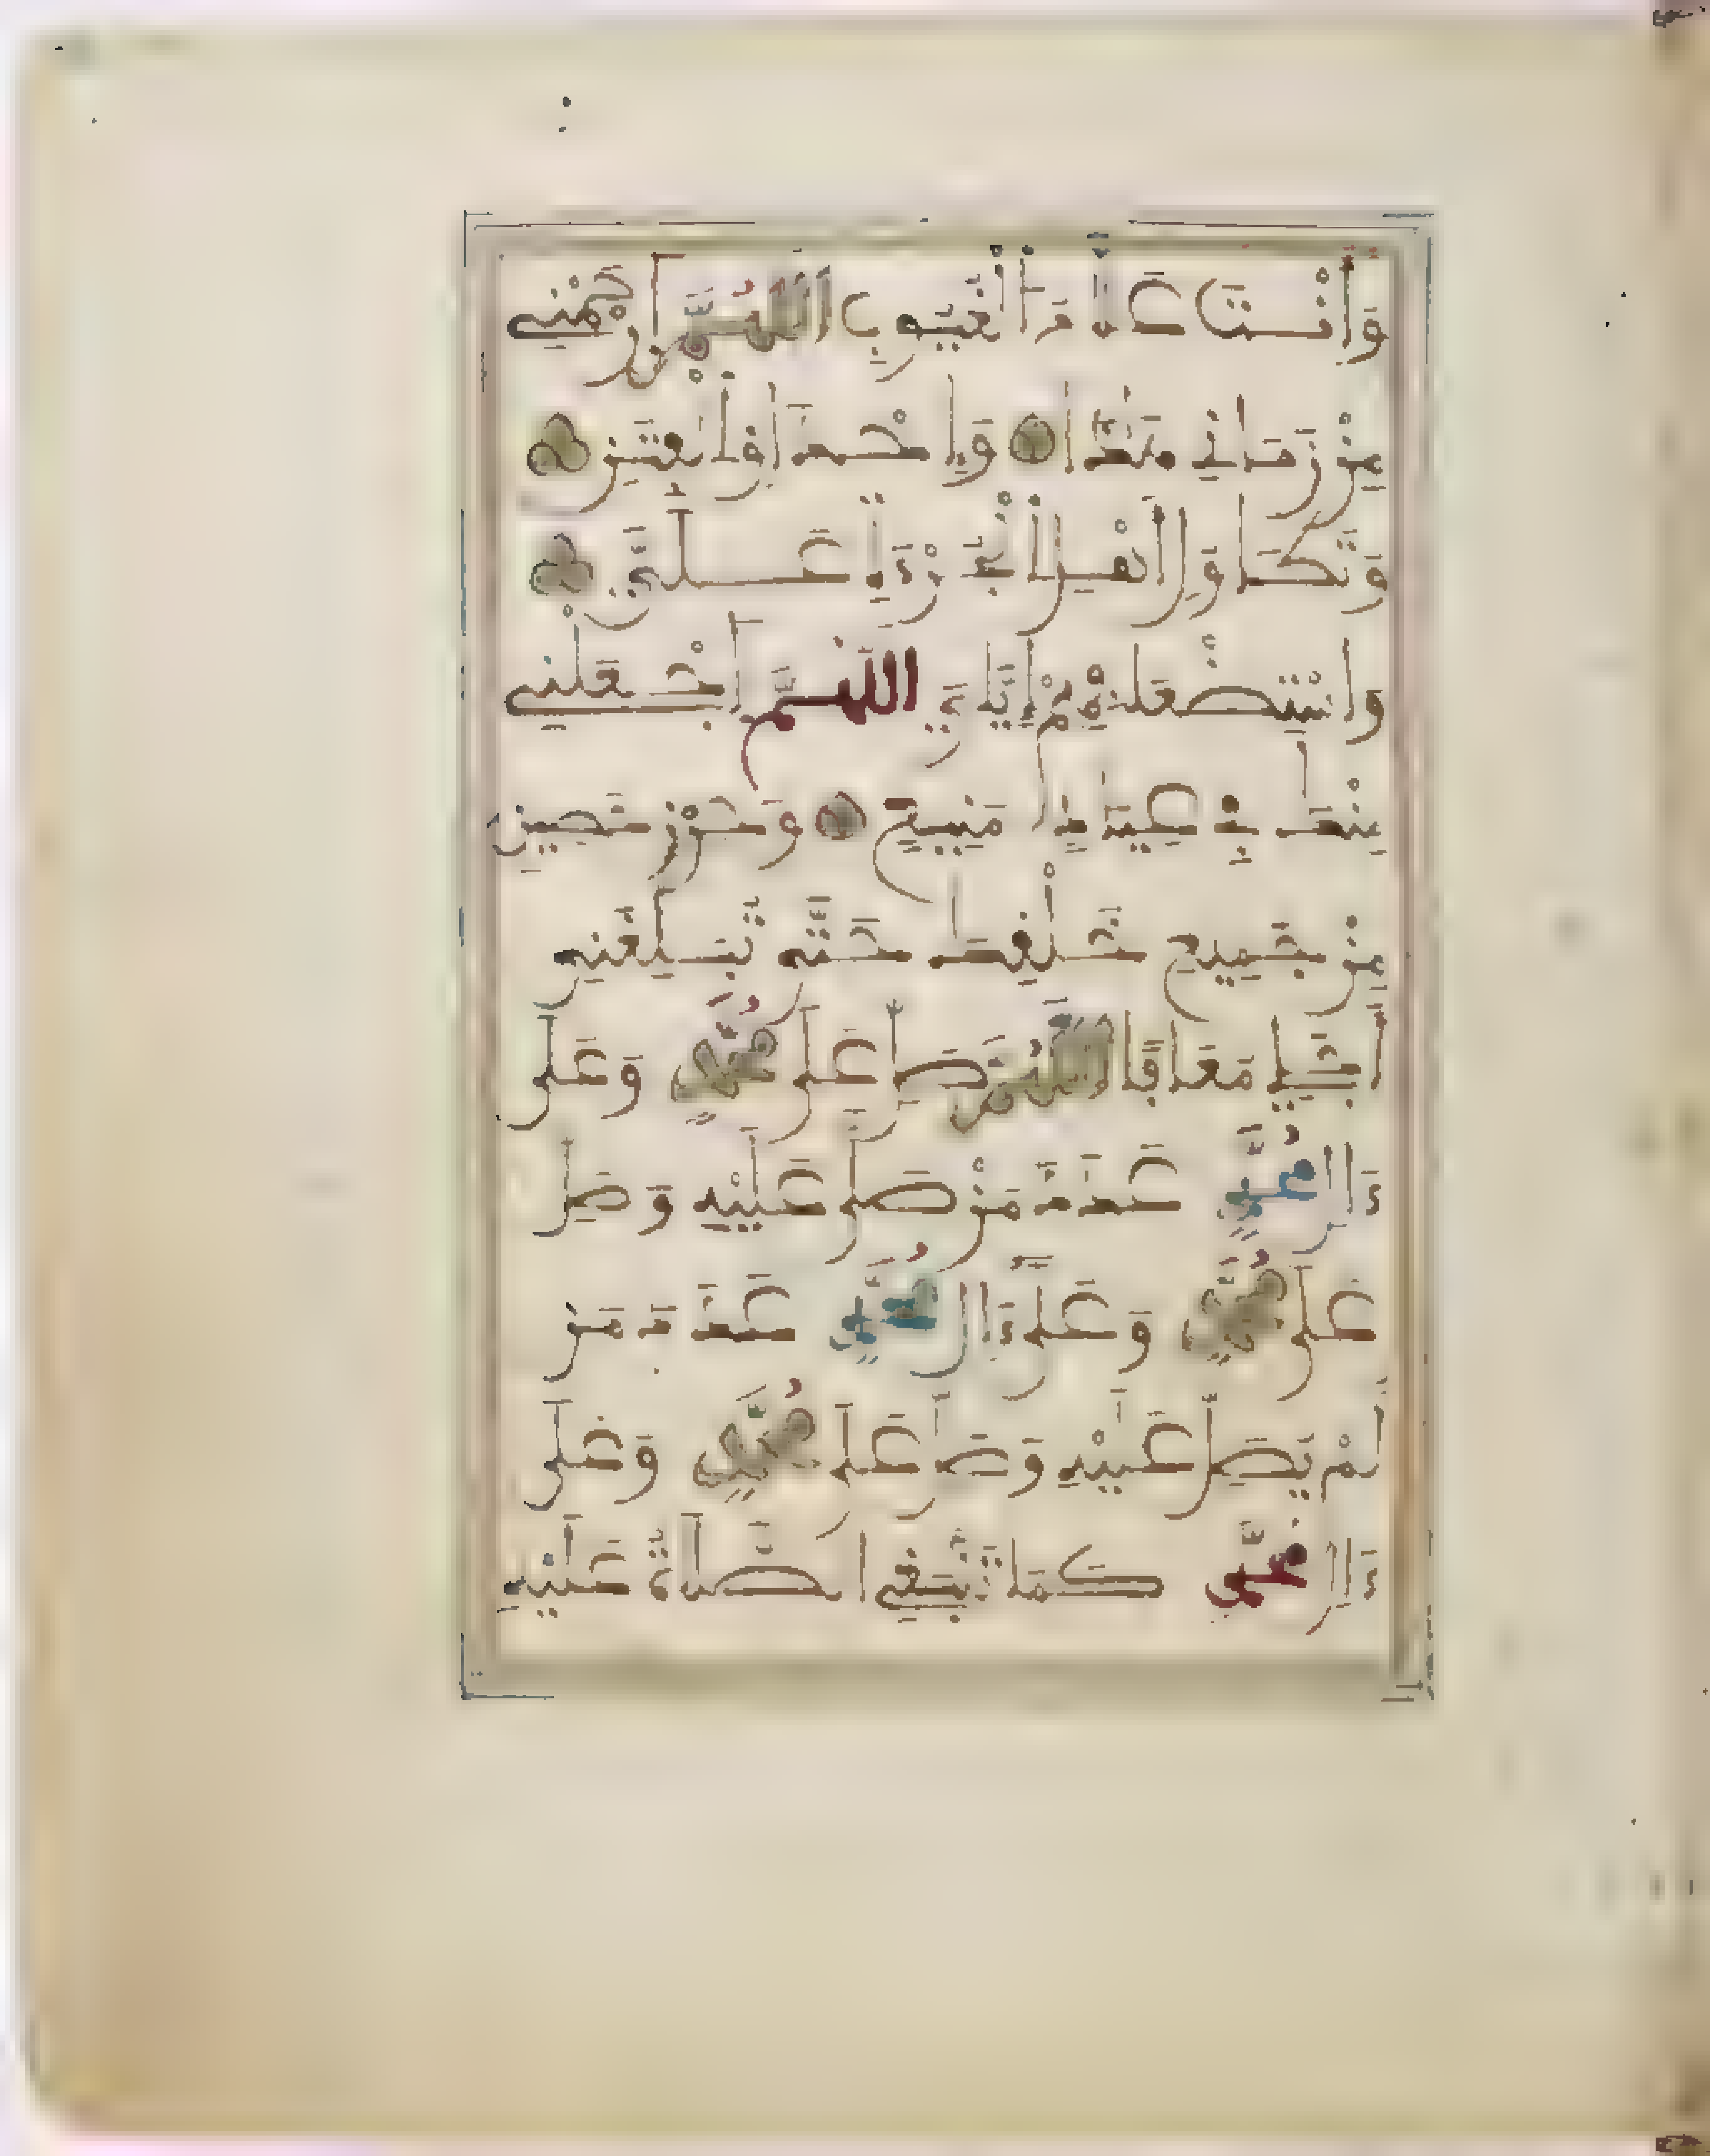 وَأَنْتَ عَلَّامُ الْغُيُوبِ اللَّهُمَّ ارْحَمْنِي
مِنْ زَمَانِي هَذَا وَإِحْدَاقِ الْفِتَنِ
وَتَطَاوُلِ أَهْلِ الْجُرْأَةِ عَلَيَّ
وَاسْتِضْعَافِهِمْ إِيَّايَ اللَّهُمَّ اجْعَلْنِي
مِنْكَ فِي عِيَاذٍ مَنِيعٍ وَحِرْزٍ حَصِينٍ
مِنْ جَمِيعِ خَلْقِكَ حَتَّى تُبَلِّغَنِي
أَجَلِي مُعَافًى اللَّهُمَّ صَلِّ عَلَى مُحَمَّدٍ وَعَلَى
ءَالِ مُحَمَّدٍ عَدَدَ مَنْ صَلَّى عَلَيْهِ وَصَلِّ
عَلَى مُحَمَّدٍ وَعَلَى ءَالِ مُحَمَّدٍ عَدَدَ مَنْ
لَمْ يُصَلِّ عَلَيْهِ وَصَلِّ عَلَى مُحَمَّدٍ وَعَلَى
ءَالِ مُحَمَّدٍ كَمَا تَنْبَغِي الصَّلَاةُ عَلَيْهِ